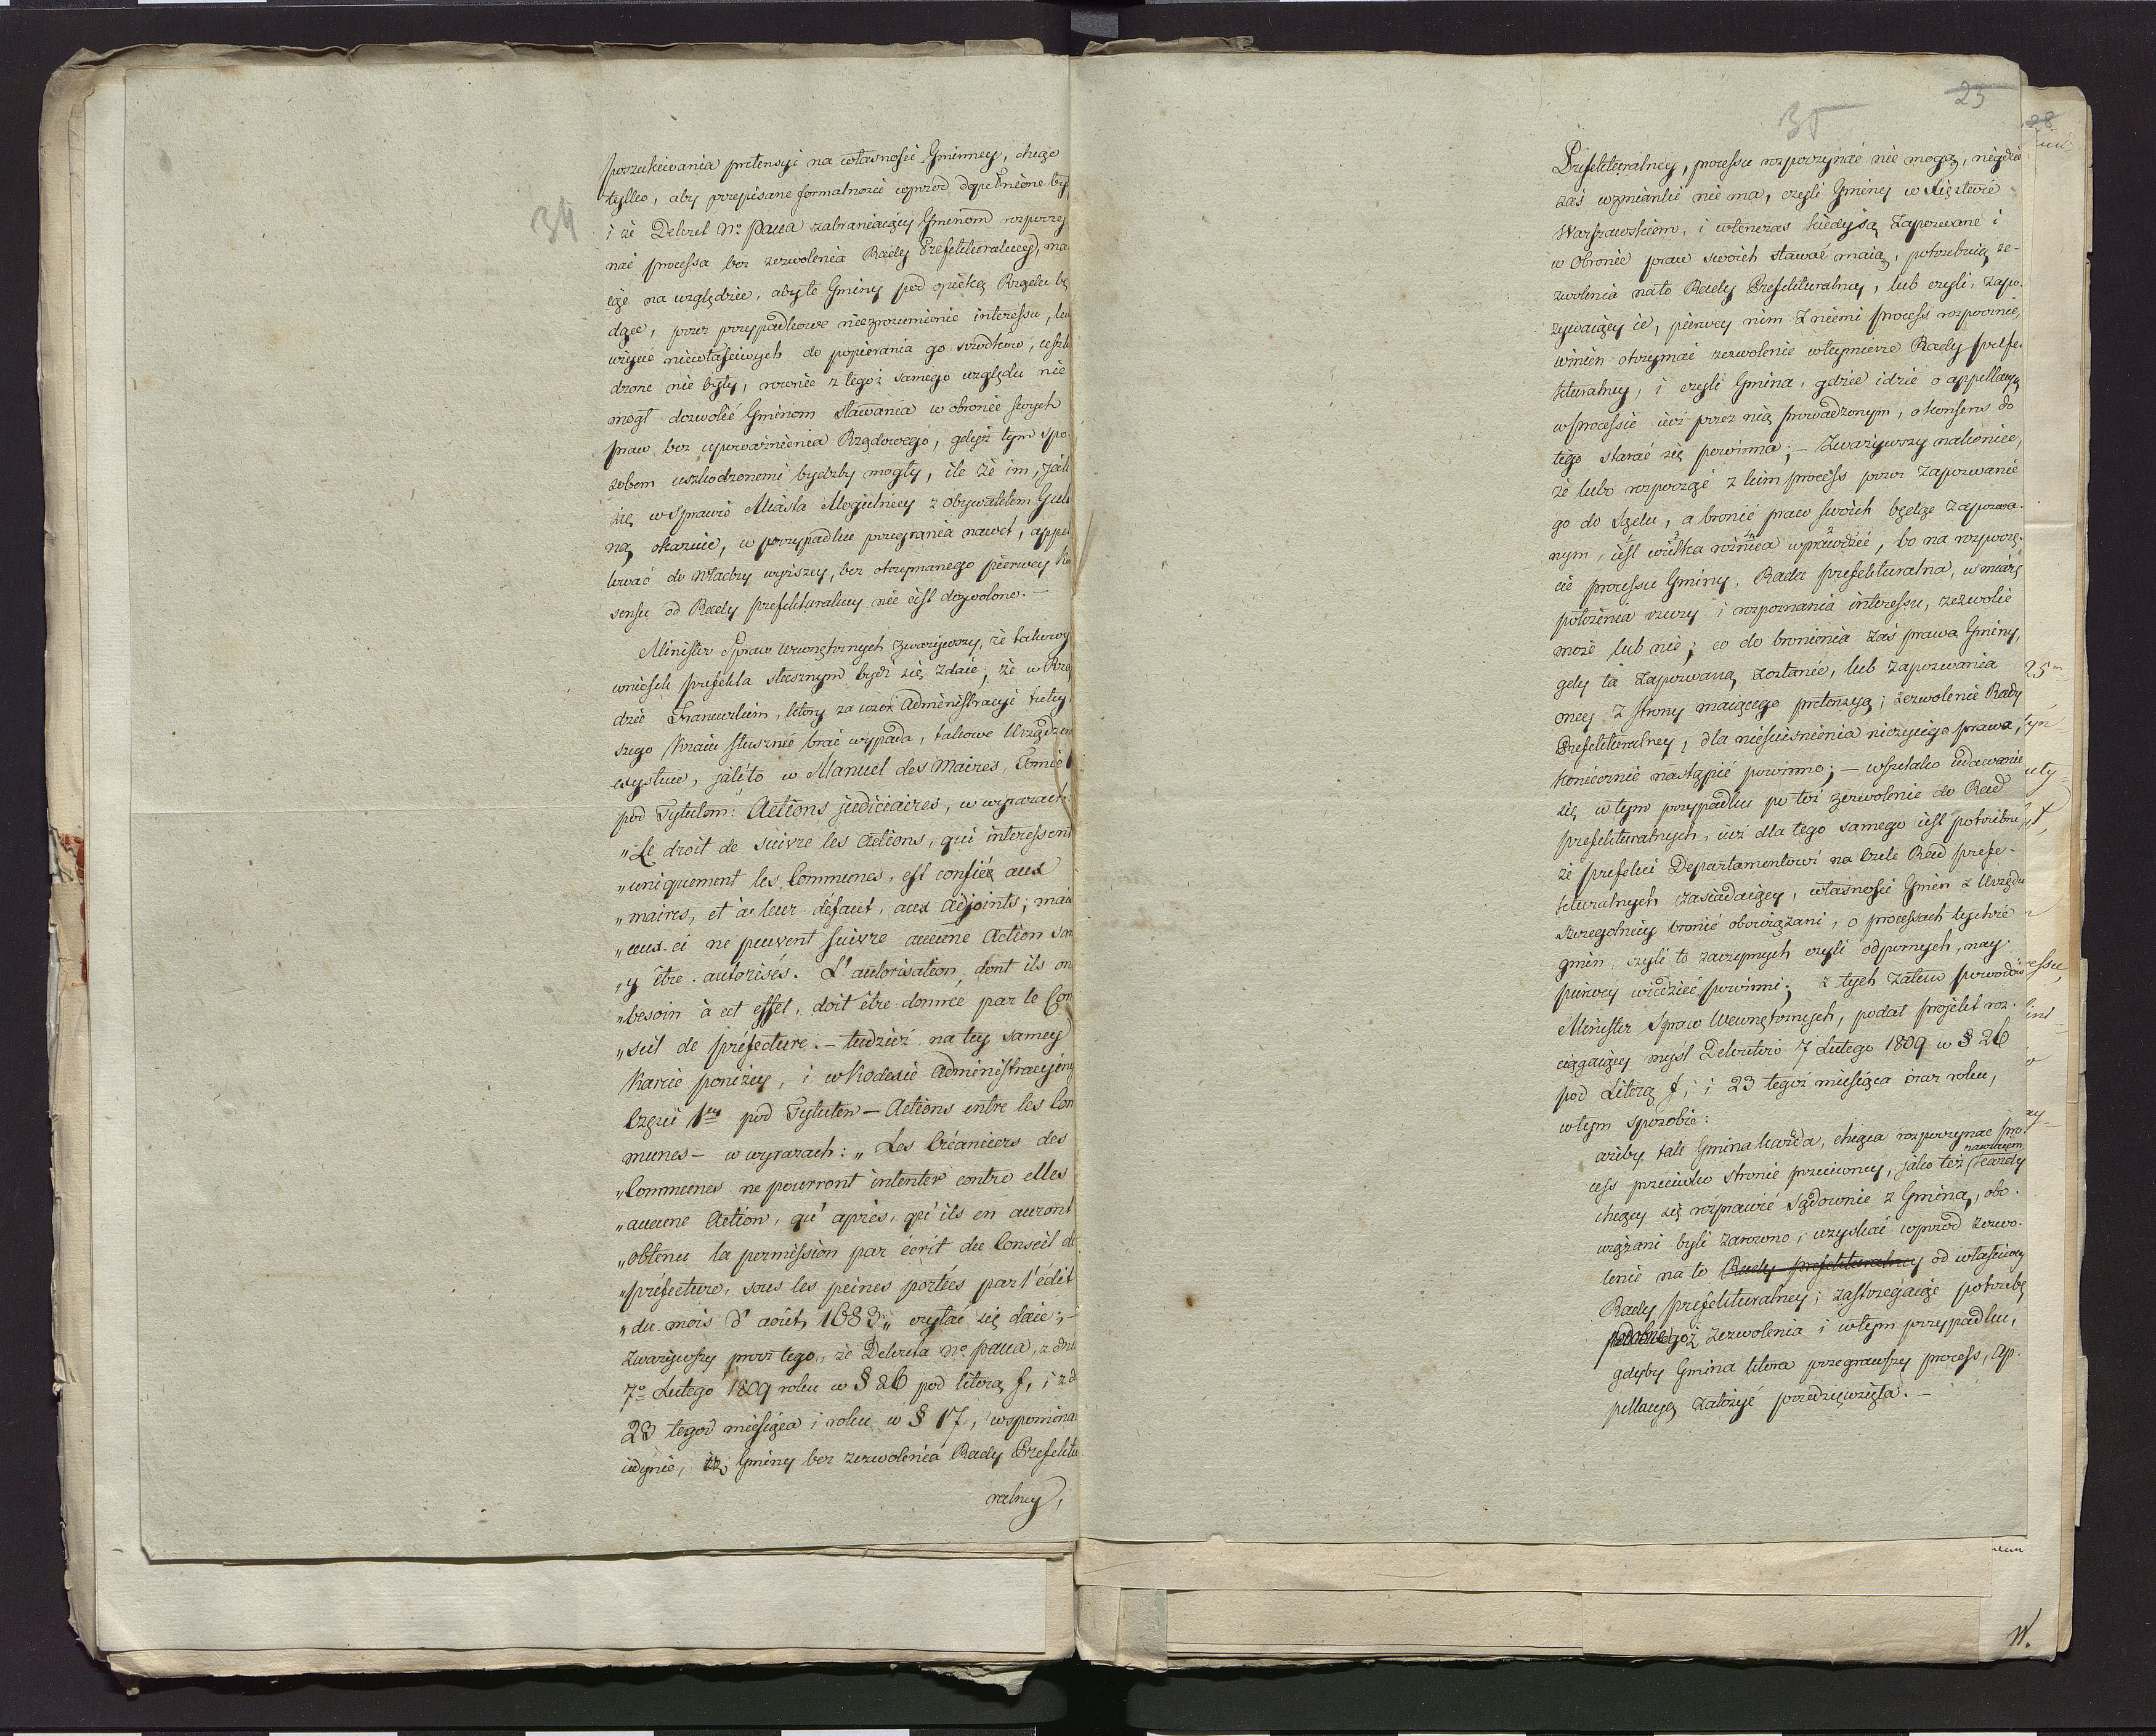 34
poszukiwania pretensyi na własności Gminney, chcąc
tylko, aby przepisane formalności wprzod dopełnione by
i że Dekret N. Pana zabraniaiący Gminom rozpoczy
nać processa bez zezwolenia Rady Prefekturalney, ma
iąc na względzie, aby te Gminy pod opieką Rządu bę
dące, przez przypadkowe niezrozumienie interessu, lu
użycie niewłaściwych do popierania go srzodkow, uszko
dzone nie były, rownie z tegoż samego względu nie
mogł dozwolić Gminom stawania w obronie swych
praw bez upoważnienia Rządowego, gdyż tym spo-
sobem uszkodzonemi bydźby mogły, ile że im, jak
się w Sprawie Miasta Mogielnicy z Obywatelem
ną okazuie, w przypadku przegrania nawet, appel
lować do Władzy wyższey, bez otrzymanego pierwey Ko
sensu od Rady prefekturalney nie iest dozwolone. —
Minister Spraw Wewnętrznych zważywszy, że takowy
wniosek prefekta słusznym bydź się zdaie; że w Rzą
dzie Francuzkim, ktory za wzor Administracyi tutey
szego Kraiu słusznie brać wypada, takowe Urządzen
exystuie, jak to w Manuel des Maires, Tomie
pod Tytułem: Actions judiciaires, w wyrazach:
„Le droit de suivre les Actions, qui interessent
„uniquement les Communes, est confiée aux
„maires, et à leur défaut, aux Adjoints; mai
„ceux-ci ne peuvent suivre aucune Action san
„y être autorisés. L'autorisation, dont ils on
„besoin à cet effet, doit être donnée par le Con
„seil de préfecture. — tudzież na tey samey
Karcie poniżey, i w Kodexie Administracyiny
Części 1ey pod Tytułem — Actions entre les Com
munes — w wyrazach: „Les Créanciers des
„Communes ne pourront intenter contre elles
„aucune Action, qu'après, qu'ils en auront
„obtenu la permission par écrit du Conseil de
„préfecture, sous les peines portées par l'édit
„du mois d'août, 1683„ czytać się daie; —
zważywszy prócz tego, że Dekreta N. Pana, z dnia
7o Lutego 1809 roku w § 26 pod literą f, i z d
23 tegoż miesiąca i roku w § 17, wspomina
iedynie, iż Gminy bez zezwolenia Rady Prefektu
ralney,
35
25
Prefekturalney, processu rozpoczynać nie mogą, nigdzie
zaś wzmianki nie ma, czyli Gminy w Xięstwie
Warszawskiem, i wtenczas kiedy są Zapozwane i
w Obronie praw swoich stawać maią, potrzebuią ze-
zwolenia na to Rady Prefekturalney, lub czyli, zapo-
zywaiący ie, pierwey nim z niemi process rozpocznie,
winien otrzymać zezwolenie wteymierze Rady prefe-
kturalney, i czyli Gmina, gdzie idzie o appellacyą
w processie iuż przez nią prowadzonym, o konsens do
tego starać się powinna; — Zważywszy nakoniec,
że lubo rozpocząć z kim process przez Zapozwanie
go do Sądu, a bronić praw swoich będąc Zapozwa-
nym, iest wielka rożnica wprawdzie, bo na rozpoczę-
cie processu Gminy, Rada prefekturalna, w miarę
położenia rzeczy i rozpoznania interessu, zezwolić
może lub nie; co do bronienia zaś prawa Gminy,
gdy ta Zapozwaną zostanie, lub zapozwania
oney z strony maiącego pretensyą; zezwolenie Rady
Prefekturalney, dla nieścisnienia niczyiego prawa,
koniecznie nastąpić powinno; — wszelako udawanie
się w tym przypadku po toż zezwolenie do Rad
prefekturalnych, iuż dla tego samego iest potrzebne
że prefekci Departamentowi na Czele Rad prefe-
kturalnych zasiadaiący, własności Gmin z Urzędu
szczegolniey bronić obowiązani, o processach tychże
gmin, czyli to zaczepnych czyli odpornych, nay-
pierwey wiedzieć powinni; z tych zatem powodów
Minister Spraw Wewnętrznych, podał projekt roz-
ciągaiący mysl Dekretów 7 Lutego 1809 w § 26
pod Literą f; i 23 tegoż miesiąca oraz roku,
w tym sposobie:
ażeby tak Gmina każda, chcąca rozpoczynać pro-
cess przeciwko stronie przeciwney, jako też nawzaiem każdy
chcący się rozprawić Sądownie z Gminą, obo-
wiązani byli zarowno, uzyskać wprzod zezwo-
lenie na to Rady prefekturalney od właściwey
Rady prefekturalney; zastrzegaiąc potrzebę
podobnegoż zezwolenia i w tym przypadku,
gdyby Gmina ktora przegrawszy process, ap-
pellacyą założyć przedsięwzięła. —